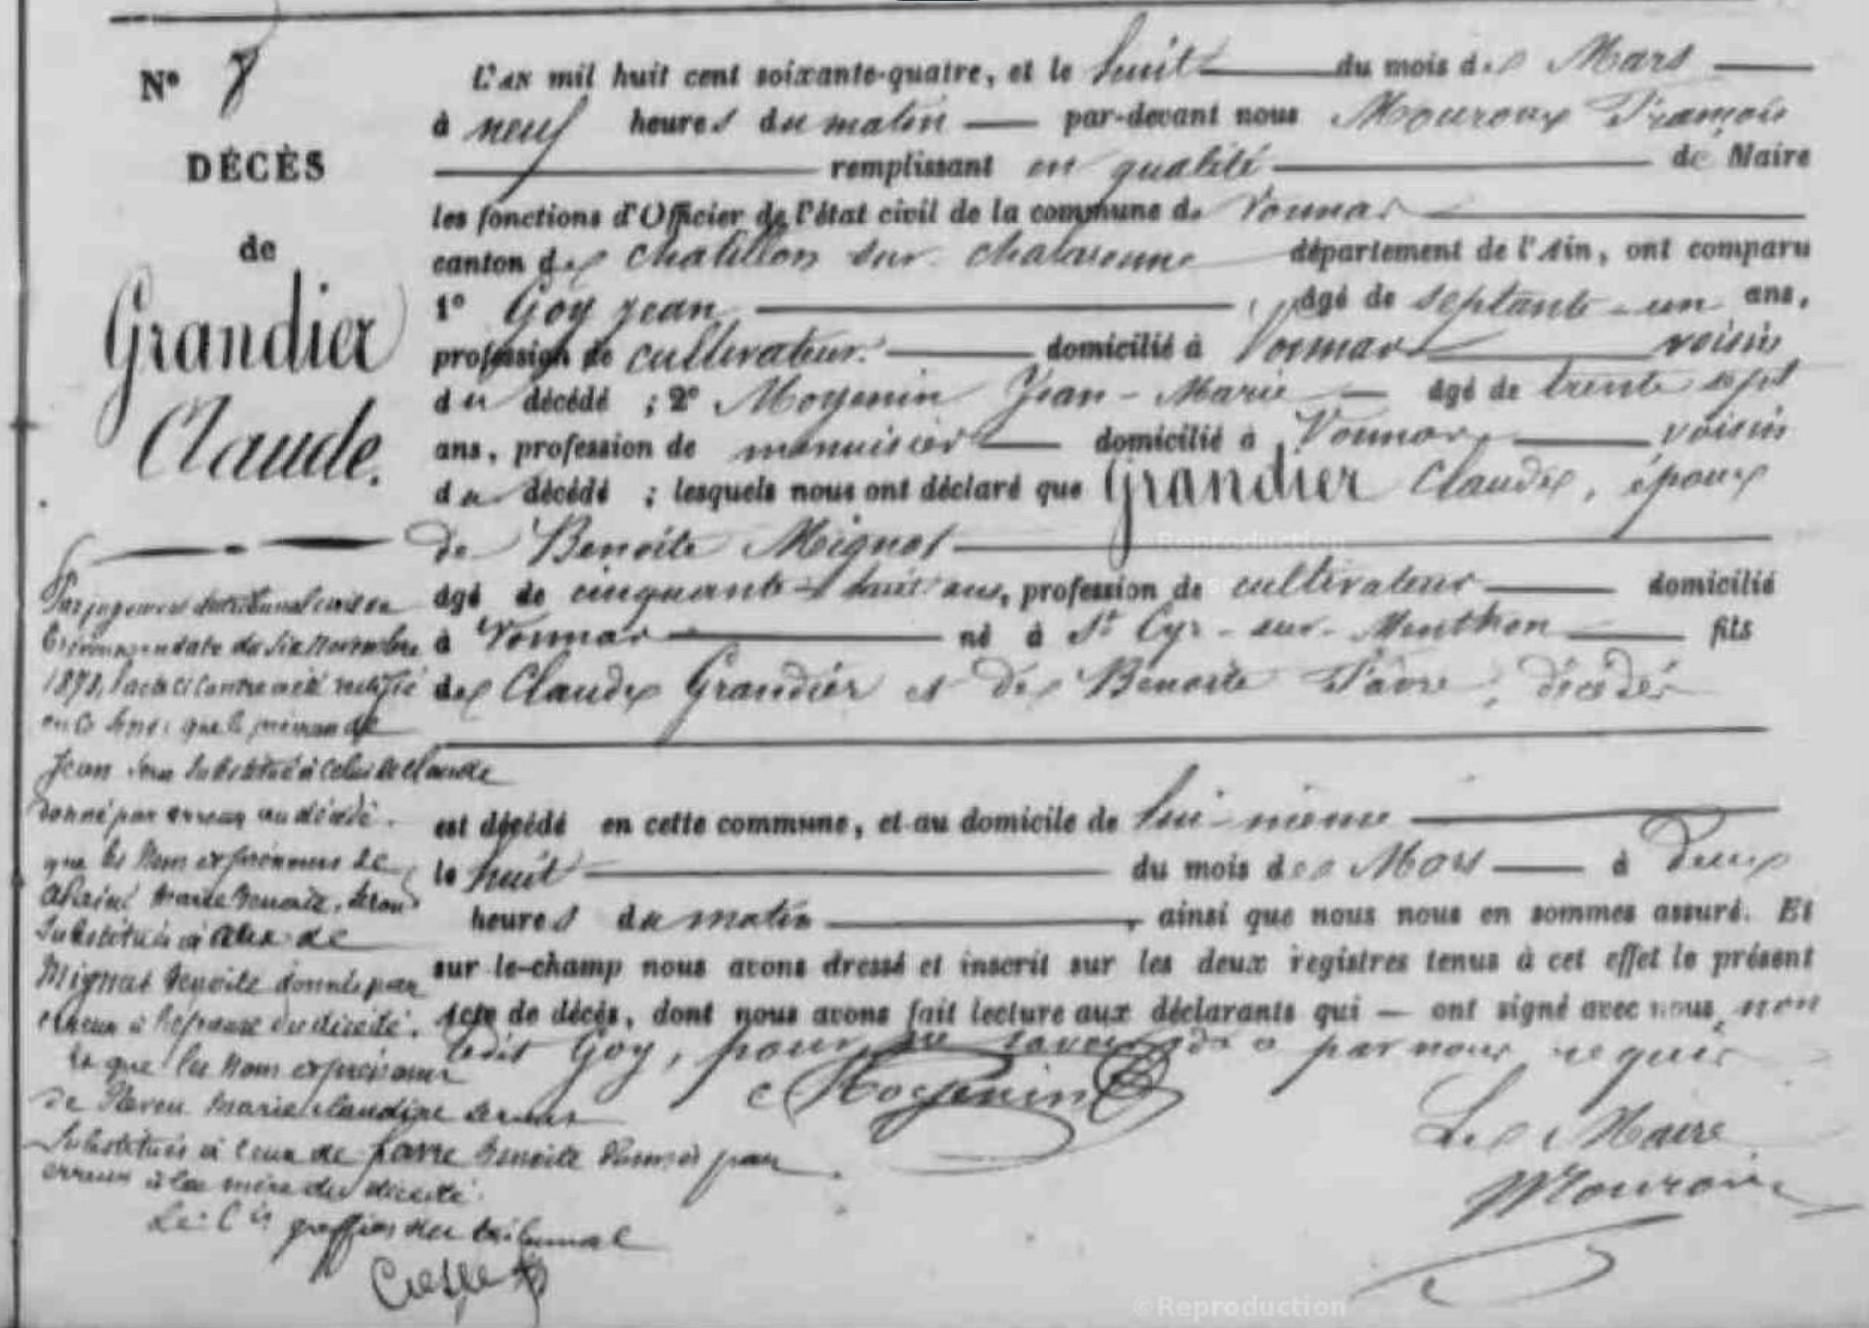 N° 8
DÉCÈS
de
Grandier
Claude.
L'AN mil huit cent soixante-quatre, et le huit du mois de Mars
à neuf heures du matin par-devant nous Mouroux François
remplissant en qualité de Maire
les fonctions d'Officier de l'état civil de la commune de Vonnas
canton de Chatillon sur Chalaronne département de l'Ain, ont comparu
1° Goy Jean, âgé de septante-un ans,
profession de cultivateur domicilié à Vonnas voisin
du décédé ; 2° Moyenin Jean-Marie âgé de trente sept
ans, profession de menuisier domicilié à Vonnas, voisin
du décédé ; lesquels nous ont déclaré que Grandier Claude, époux
de Benoîte Mignot
âgé de cinquante-huit ans, profession de cultivateur domicilié
à Vonnas né à St Cyr-sur-Menthon fils
de Claude Grandier et de Benoite Favre, décédés
est décédé en cette commune, et au domicile de lui-même
le huit du mois de Mars à deux
heures du matin, ainsi que nous nous en sommes assuré. Et
sur-le-champ nous avons dressé et inscrit sur les deux registres tenus à cet effet le présent
Acte de décès, dont nous avons fait lecture aux déclarants qui — ont signé avec nous, non
ledit Goy, pour ne savoir de par nous requis
Moyenin
Le Maire
Mouroux
Par jugement du tribunal civil de
en date du six Novembre
1878, l'acte ci contre a été rectifié
en ce sens : que le prénom de
Jean sera substitué à celui de Claude
donné par erreur au décédé.
que les nom et prénoms de
Marie Benoite, seront
substitués à ceux de
Mignat Benoite donnés par
erreur à l'épouse du décédé.
et que les nom et prénoms
de Marie Claudine seront
substitués à ceux de Favre Benoite donnés par
erreur à la mère du décédé.
Le Cis greffier du tribunal